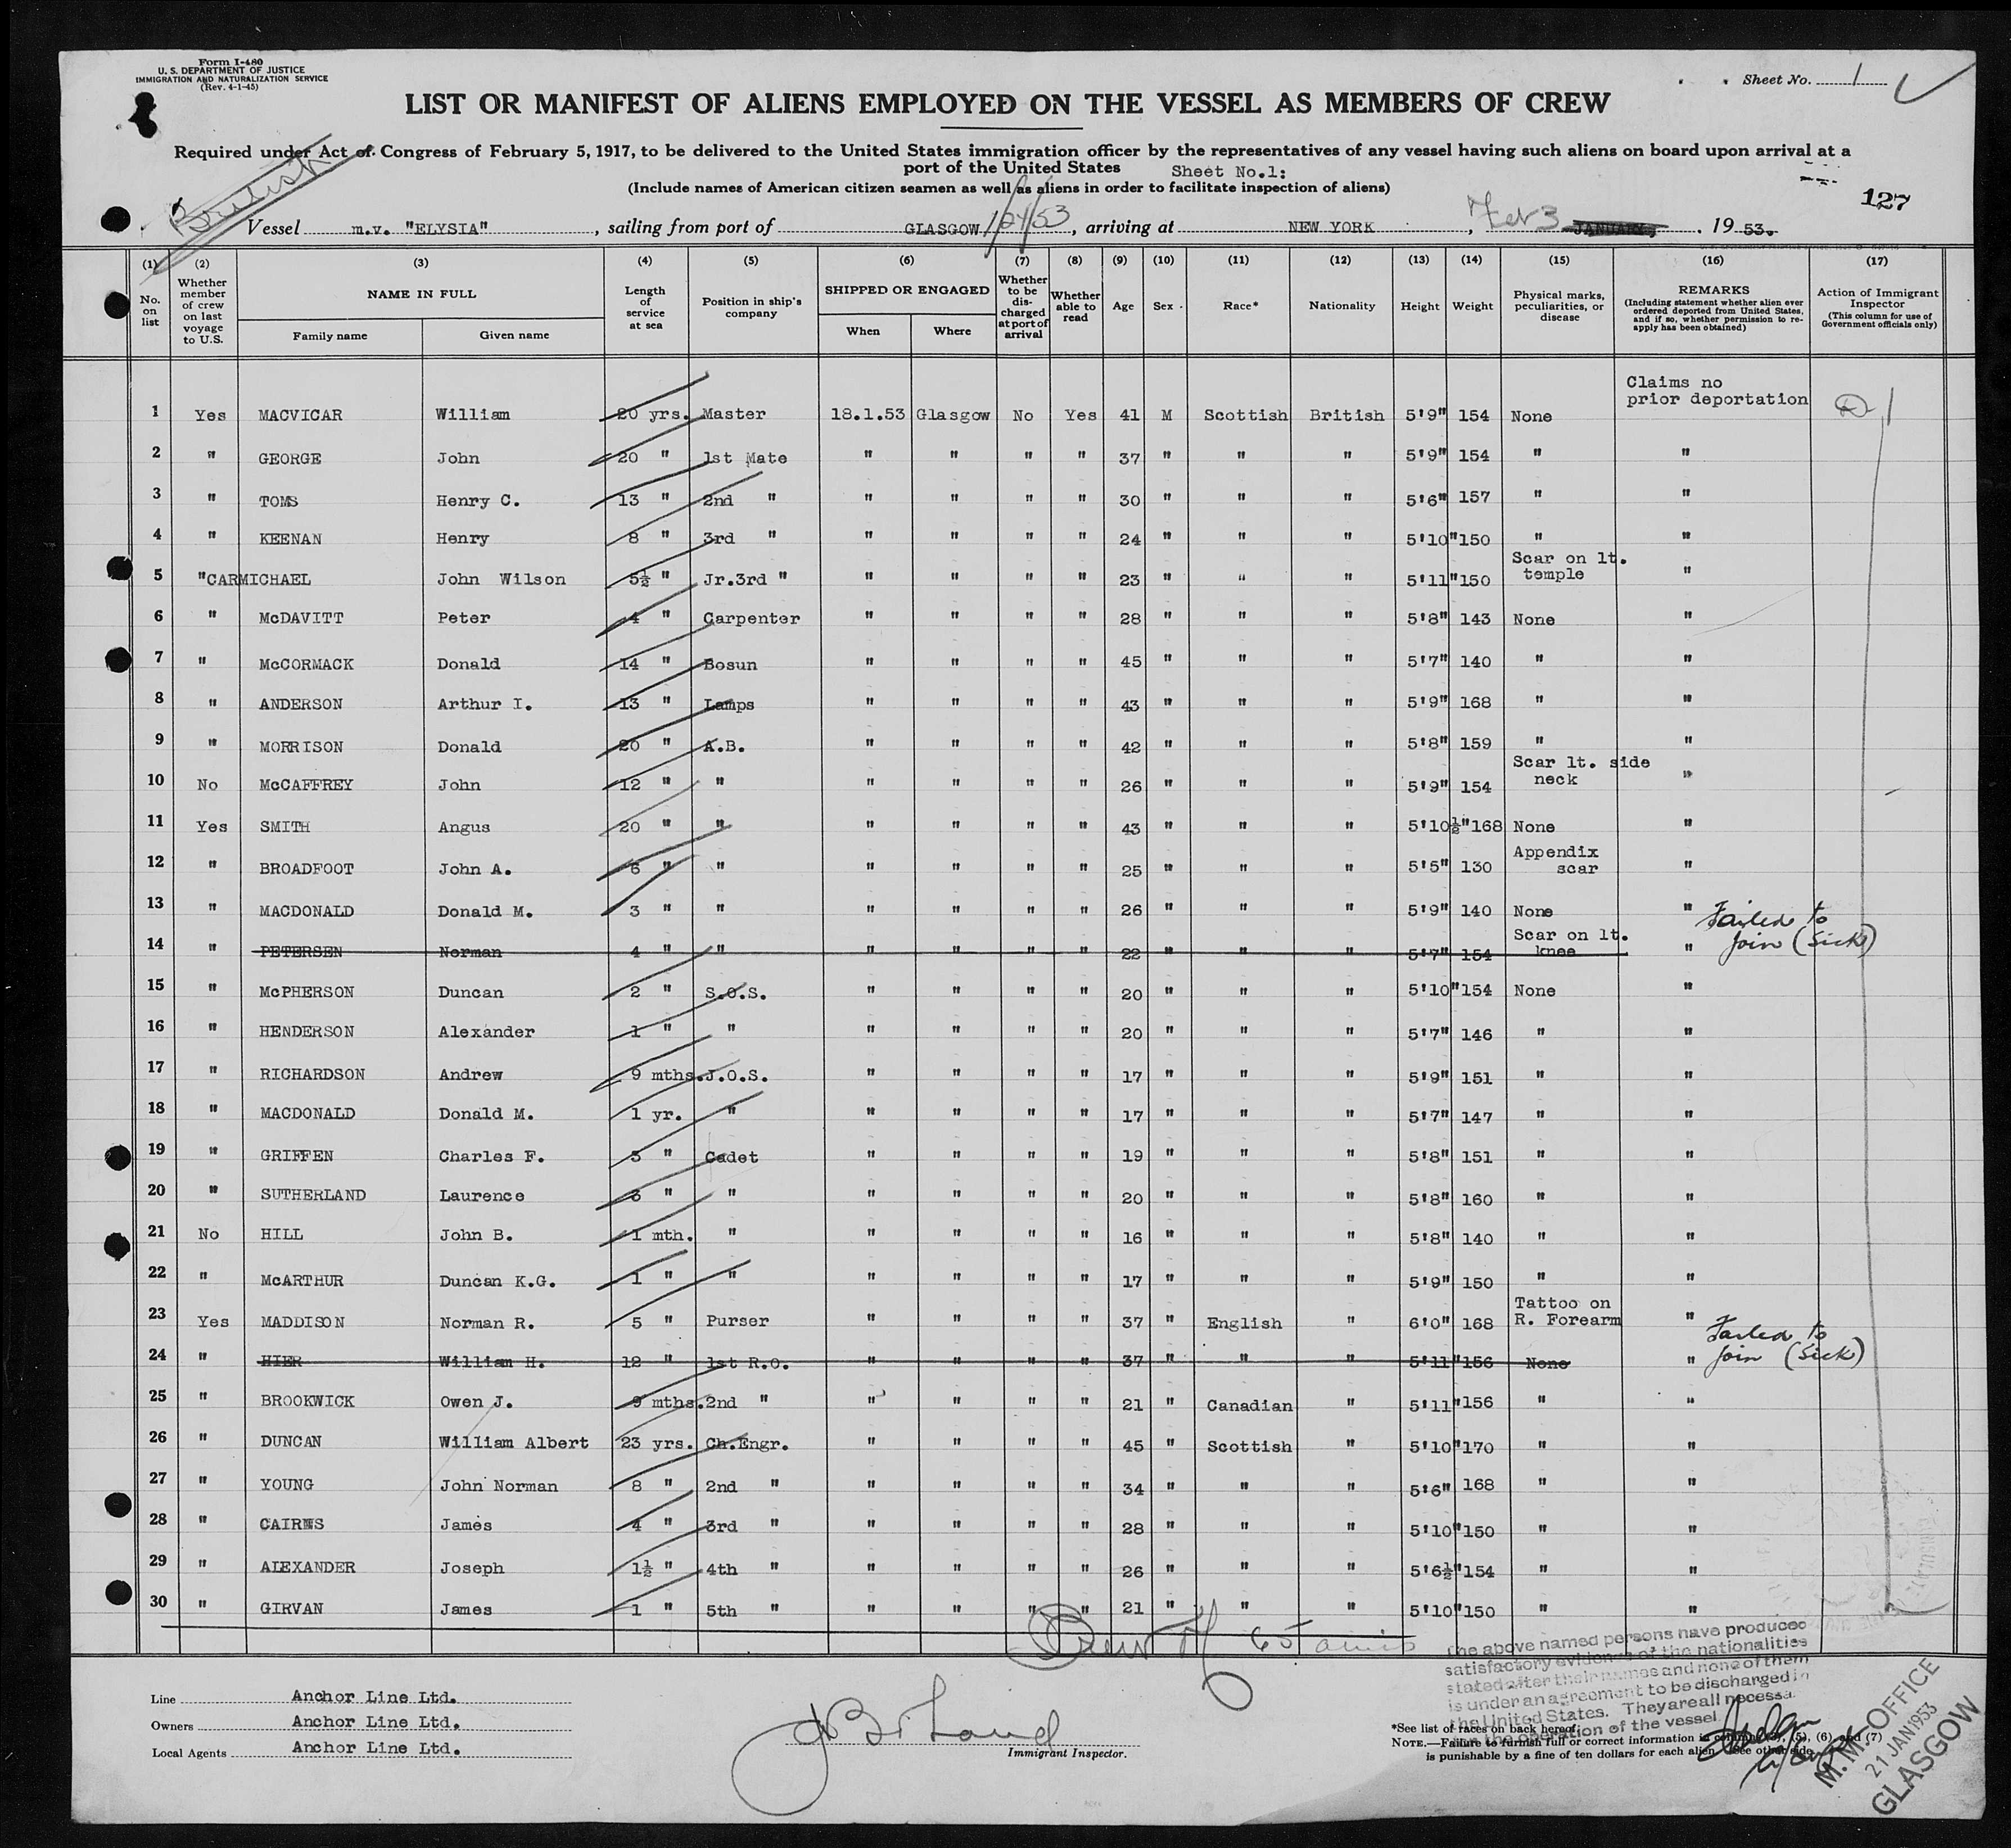 Form I-480
U. S. DEPARTMENT OF JUSTICE
IMMIGRATION AND NATURALIZATION SERVICE
(Rev. 4-1-45)
Sheet No. 1
LIST OR MANIFEST OF ALIENS EMPLOYED ON THE VESSEL AS MEMBERS OF CREW
Required under Act of Congress of February 5, 1917, to be delivered to the United States immigration officer by the representatives of any vessel having such aliens on board upon arrival at a
port of the United States Sheet No.1:
(Include names of American citizen seamen as well as aliens in order to facilitate inspection of aliens)
British
127
Vessel m.v. "ELYSIA", sailing from port of GLASGOW 1/24/53, arriving at NEW YORK, Feb 3 JANUARY, 1953.
(1) (2) (3) (4) (5) (6) (7) (8) (9) (10) (11) (12) (13) (14) (15) (16) (17)
No. on list
Whether member of crew on last voyage to U.S.
NAME IN FULL
Family name Given name
Length of service at sea
Position in ship's company
SHIPPED OR ENGAGED
When Where
Whether to be discharged at port of arrival
Whether able to read
Age
Sex
Race*
Nationality
Height
Weight
Physical marks, peculiarities, or disease
REMARKS
(Including statement whether alien ever ordered deported from United States, and if so, whether permission to re-apply has been obtained)
Action of Immigrant Inspector
(This column for use of Government officials only)
1 Yes MACVICAR William 20 yrs. Master 18.1.53 Glasgow No Yes 41 M Scottish British 5'9" 154 None Claims no prior deportation
2 " GEORGE John 20 " 1st Mate " " " " 37 " " " 5'9" 154 " "
3 " TOMS Henry C. 13 " 2nd " " " " " 30 " " " 5'6" 157 " "
4 " KEENAN Henry 8 " 3rd " " " " " 24 " " " 5'10" 150 " "
5 " CARMICHAEL John Wilson 5½ " Jr.3rd " " " " " 23 " " " 5'11" 150 Scar on lt. temple "
6 " McDAVITT Peter 4 " Carpenter " " " " 28 " " " 5'8" 143 None "
7 " McCORMACK Donald 14 " Bosun " " " " 45 " " " 5'7" 140 " "
8 " ANDERSON Arthur I. 13 " Lamps " " " " 43 " " " 5'9" 168 " "
9 " MORRISON Donald 20 " A.B. " " " " 42 " " " 5'8" 159 " "
10 No McCAFFREY John 12 " " " " " " 26 " " " 5'9" 154 Scar lt. side neck "
11 Yes SMITH Angus 20 " " " " " " 43 " " " 5'10½" 168 None "
12 " BROADFOOT John A. 6 " " " " " " 25 " " " 5'5" 130 Appendix scar "
13 " MACDONALD Donald M. 3 " " " " " " 26 " " " 5'9" 140 None "
14 " PETERSEN Norman 4 " " " " " " 22 " " " 5'7" 154 Scar on lt. knee " Failed to join (sick)
15 " McPHERSON Duncan 2 " S.O.S. " " " " 20 " " " 5'10" 154 None "
16 " HENDERSON Alexander 1 " " " " " " 20 " " " 5'7" 146 " "
17 " RICHARDSON Andrew 9 mths. J.O.S. " " " " 17 " " " 5'9" 151 " "
18 " MACDONALD Donald M. 1 yr. " " " " " 17 " " " 5'7" 147 " "
19 " GRIFFEN Charles F. 3 " Cadet " " " " 19 " " " 5'8" 151 " "
20 " SUTHERLAND Laurence 3 " " " " " " 20 " " " 5'8" 160 " "
21 No HILL John B. 1 mth. " " " " " 16 " " " 5'8" 140 " "
22 " McARTHUR Duncan K.G. 1 " " " " " " 17 " " " 5'9" 150 " "
23 Yes MADDISON Norman R. 5 " Purser " " " " 37 " English " 6'0" 168 Tattoo on R. Forearm "
24 " HIER William H. 12 " 1st R.O. " " " " 37 " " " 5'11" 156 None " Failed to join (sick)
25 " BROOKWICK Owen J. 9 mths. 2nd " " " " " 21 " Canadian " 5'11" 156 " "
26 " DUNCAN William Albert 23 yrs. Ch.Engr. " " " " 45 " Scottish " 5'10" 170 " "
27 " YOUNG John Norman 8 " 2nd " " " " " 34 " " " 5'6" 168 " "
28 " CAIRNS James 4 " 3rd " " " " " 28 " " " 5'10" 150 " "
29 " ALEXANDER Joseph 1½ " 4th " " " " " 26 " " " 5'6½" 154 " "
30 " GIRVAN James 1 " 5th " " " " " 21 " " " 5'10" 150 " "
Crew 65
The above named persons have produced
satisfactory evidence of the nationalities
stated after their names and none of them
is under an agreement to be discharged in
the United States. They are all necessa
operation of the vessel
Line Anchor Line Ltd.
Owners Anchor Line Ltd.
Local Agents Anchor Line Ltd.
Immigrant Inspector.
*See list of races on back hereof.
NOTE.—Failure to furnish full or correct information in columns (3), (5), (6) and (7)
is punishable by a fine of ten dollars for each alien. See other side.
M.M. OFFICE
21 JAN 1953
GLASGOW